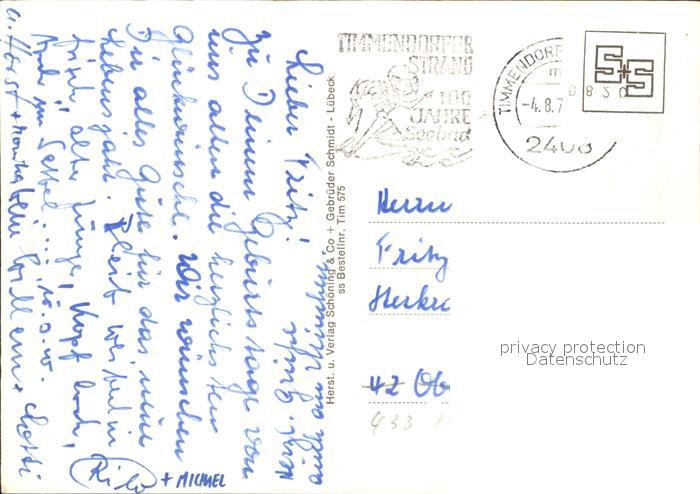 Lieber Fritz!
Zu Deinem Geburtstage von
uns allen die herzlichsten
Glückwünsche. Wir wünschen
Dir alles Gute für das neue
Lebensjahr. Bleib weiterhin
frisch alter Junge, Kopf hoch,
Arsch im Sattel.... u.s.w.
+ MICHAEL
Herst. u. Verlag Schöning & Co + Gebrüder Schmidt - Lübeck
ss Bestellnr. Tim 575
TIMMENDORFER
STRAND
100
JAHRE
Seebad
TIMMENDORF
-4.8.7
2408
S+S
0820
Herrn
Fritz
42 Ob
433
privacy protection
Datenschutz